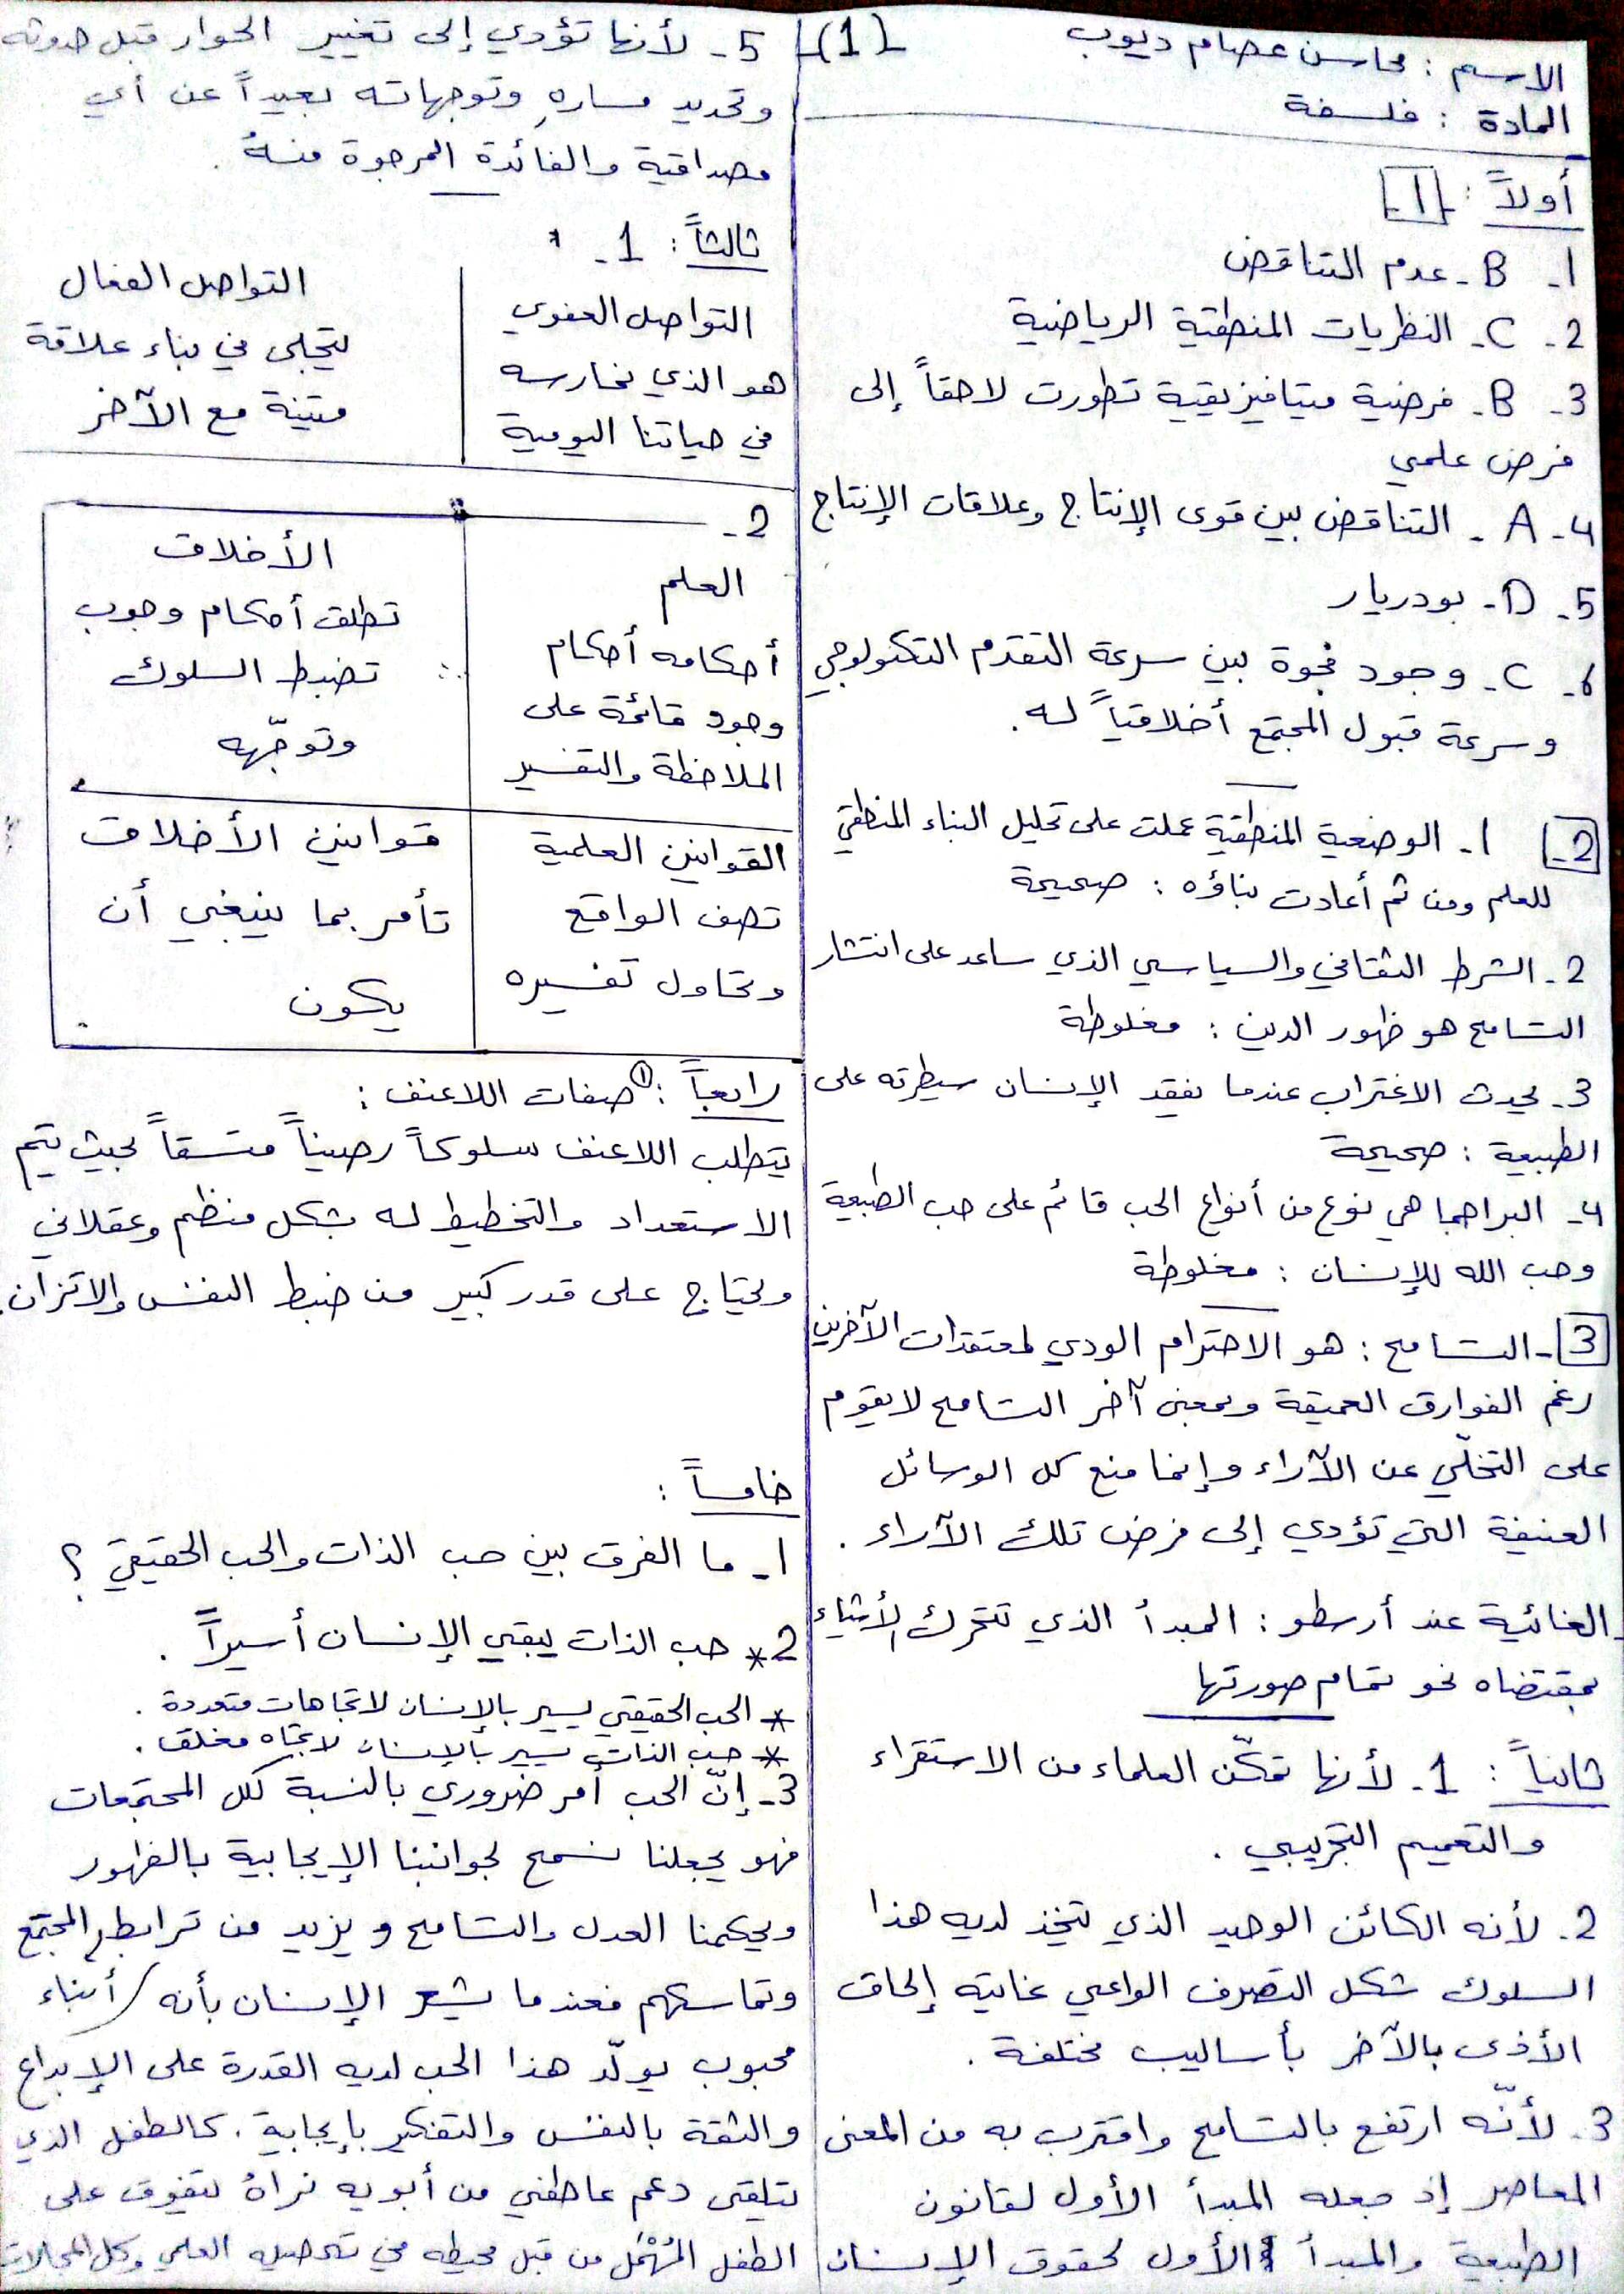 الاسم : محاسن عصام ديوب
-(1)-
المادة : فلسفة
أولاً : -1-
1- B- عدم التناقض
2- C- النظريات المنطقية الرياضية
3- B- فرضية ميتافيزيقية تطورت لاحقاً إلى
فرض علمي
4- A- التناقض بين قوى الإنتاج وعلاقات الإنتاج
5- D- بودريار
6- C- وجود فجوة بين سرعة التقدم التكنولوجي
وسرعة قبول المجتمع أخلاقياً له.
2- 1- الوضعية المنطقية عملت على تحليل البناء المنطقي
للعلم ومن ثم أعادت بناؤه : صحيحة
2- الشرط الثقافي والسياسي الذي ساعد على انتشار
التسامح هو ظهور الدين : مغلوطة
3- يحدث الاغتراب عندما يفقد الإنسان سيطرته على
الطبيعة : صحيحة
4- البراجما هي نوع من أنواع الحب قائم على حب الطبيعة
وحب الله للإنسان : مغلوطة
3- التسامح : هو الاحترام الودي لمعتقدات الآخرين
رغم الفوارق العميقة وبمعنى آخر التسامح لا يقوم
على التخلّي عن الآراء وإنما منع كل الوسائل
العنيفة التي تؤدي إلى فرض تلك الآراء .
- الغائية عند أرسطو : المبدأ الذي تتحرك الأشياء
بمقتضاه نحو تمام صورتها
ثانياً : 1- لأنها تمكّن العلماء من الاستقراء
والتعميم التجريبي .
2. لأنه الكائن الوحيد الذي يتخذ لديه هذا
السلوك شكل التصرف الواعي غايته إلحاق
الأذى بالآخر بأساليب مختلفة .
3. لأنّه ارتفع بالتسامح واقترب به من المعنى
المعاصر إذ جعله المبدأ الأول لقانون
الطبيعة والمبدأ الأول لحقوق الإنسان
5- لأنها تؤدي إلى تغيير الحوار قبل حدوثه
وتحديد مساره وتوجهاته بعيداً عن أي
مصداقية والفائدة المرجوة منهُ .
ثالثاً : 1-
التواصل العفوي
هو الذي نمارسه
في حياتنا اليومية
التواصل الفعال
يتجلى في بناء علاقة
متينة مع الآخر
2-
العلم
أحكامه أحكام
وجود قائمة على
الملاحظة والتفسير
الأخلاق
تطلق أحكام وجوب
تضبط السلوك
وتوجّهه
القوانين العلمية
تصف الواقع
وتحاول تفسيره
قوانين الأخلاق
تأمر بما ينبغي أن
يكون
رابعاً : ① صفات اللاعنف :
يتطلب اللاعنف سلوكاً رصيناً متسقاً بحيث يتم
الاستعداد والتخطيط له بشكل منظم وعقلاني
ويحتاج على قدر كبير من ضبط النفس والاتزان.
خامساً :
1- ما الفرق بين حب الذات والحب الحقيقي ؟
2* حب الذات يبقي الإنسان أسيراً .
* الحب الحقيقي يسير بالإنسان لاتجاهات متعددة .
* حب الذات يسير بالإنسان لاتجاه مغلق .
3- إنّ الحب أمر ضروري بالنسبة لكل المجتمعات
فهو يجعلنا نسمح لجوانبنا الإيجابية بالظهور
ويحكمنا العدل والتسامح ويزيد من ترابط المجتمع
وتماسكهم فعندما يشعر الإنسان بأنه / أبناء
محبوب يولّد هذا الحب لديه القدرة على الإبداع
والثقة بالنفس والتفكير بإيجابية . كالطفل الذي
يتلقى دعم عاطفي من أبويه نراهُ يتفوق على
الطفل المُهْمَل من قبل محيطه في تحصيله العلمي وكل المجالات